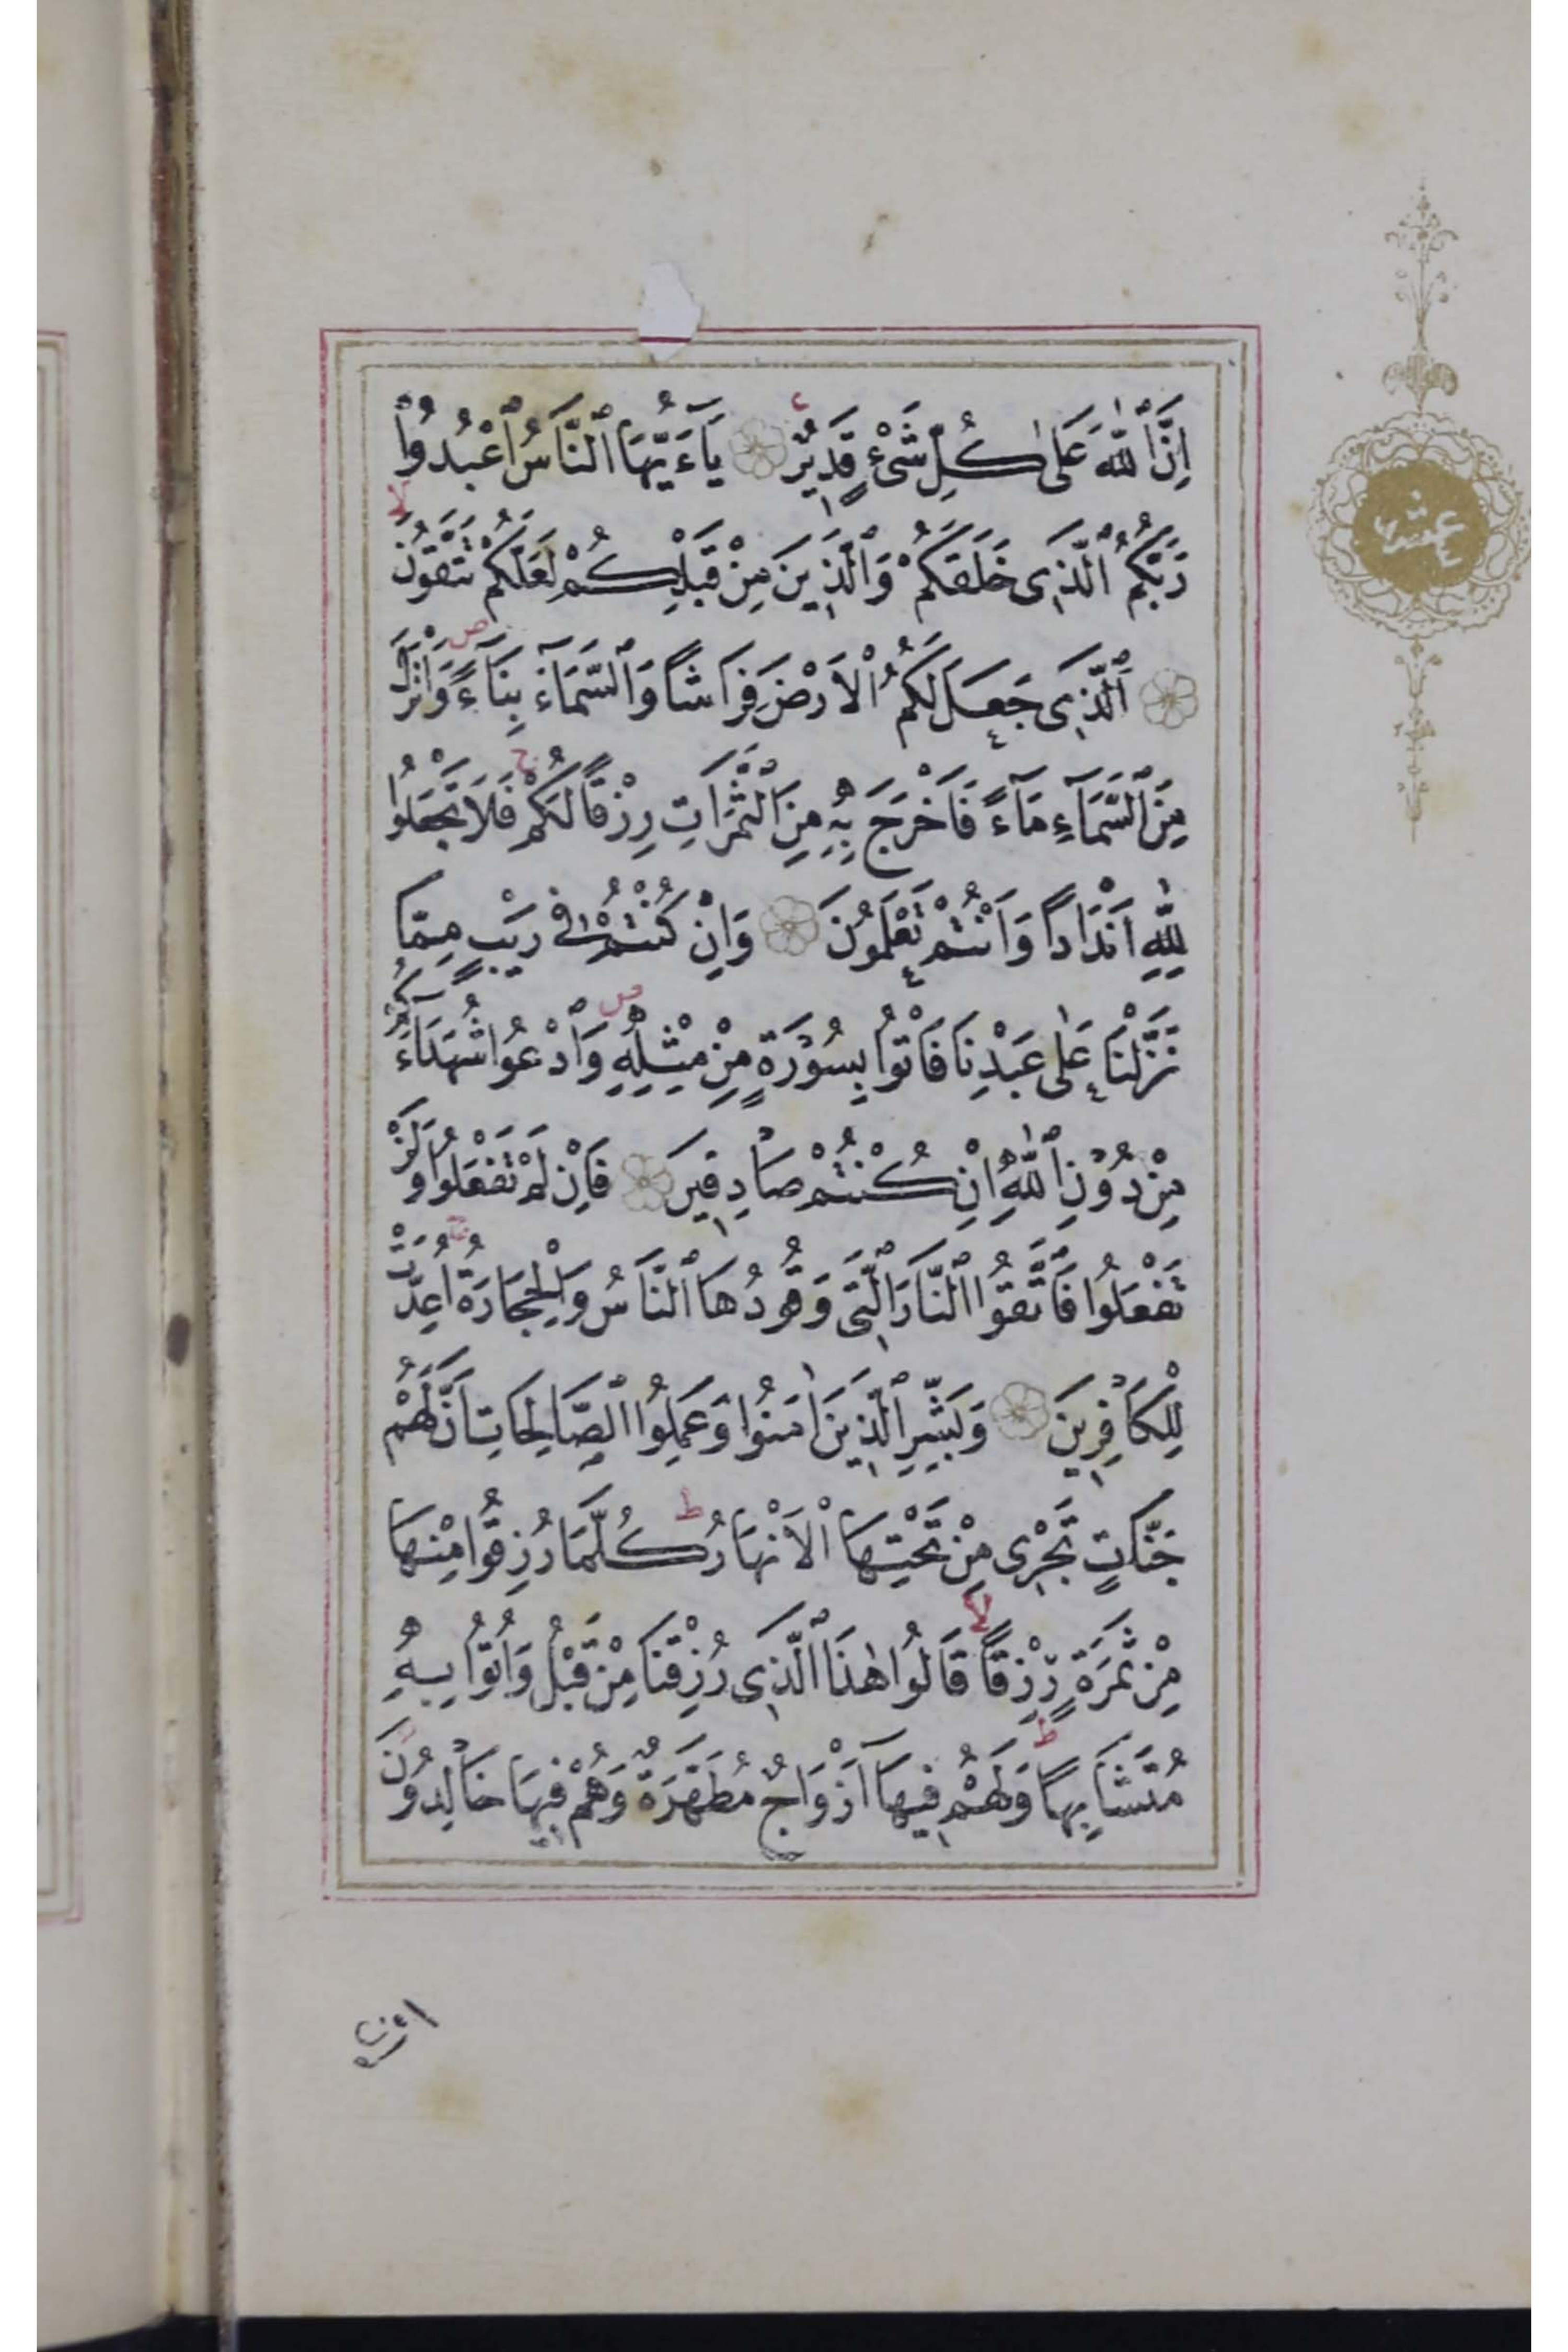 اِنَّ ٱللّٰهَ عَلٰى كُلِّ شَىْءٍ قَدِيرٌ يَٓاءَيُّهَا ٱلنَّاسُ ٱعْبُدُوا
رَبَّكُمُ ٱلَّذِى خَلَقَكُمْ وَٱلَّذِينَ مِنْ قَبْلِكُمْ لَعَلَّكُمْ تَتَّقُونَ
ٱلَّذِى جَعَلَ لَكُمُ ٱلْاَرْضَ فِرَاشًا وَٱلسَّمَٓاءَ بِنَٓاءً وَاَنْزَلَ
مِنَ ٱلسَّمَٓاءِ مَٓاءً فَاَخْرَجَ بِهِ مِنَ ٱلثَّمَرَاتِ رِزْقًا لَكُمْ فَلَا تَجْعَلُوا
لِلّٰهِ اَنْدَادًا وَاَنْتُمْ تَعْلَمُونَ وَاِنْ كُنْتُمْ فِى رَيْبٍ مِمَّا
نَزَّلْنَا عَلٰى عَبْدِنَا فَاْتُوا بِسُورَةٍ مِنْ مِثْلِهِ وَٱدْعُوا شُهَدَٓاءَكُمْ
مِنْ دُونِ ٱللّٰهِ اِنْ كُنْتُمْ صَادِقِينَ فَاِنْ لَمْ تَفْعَلُوا وَلَنْ
تَفْعَلُوا فَٱتَّقُوا ٱلنَّارَ ٱلَّتِى وَقُودُهَا ٱلنَّاسُ وَٱلْحِجَارَةُ اُعِدَّتْ
لِلْكَافِرِينَ وَبَشِّرِ ٱلَّذِينَ اٰمَنُوا وَعَمِلُوا ٱلصَّالِحَاتِ اَنَّ لَهُمْ
جَنَّاتٍ تَجْرِى مِنْ تَحْتِهَا ٱلْاَنْهَارُ كُلَّمَا رُزِقُوا مِنْهَا
مِنْ ثَمَرَةٍ رِزْقًا قَالُوا هٰذَا ٱلَّذِى رُزِقْنَا مِنْ قَبْلُ وَاُتُوا بِهِ
مُتَشَابِهًا وَلَهُمْ فِيهَٓا اَزْوَاجٌ مُطَهَّرَةٌ وَهُمْ فِيهَا خَالِدُونَ